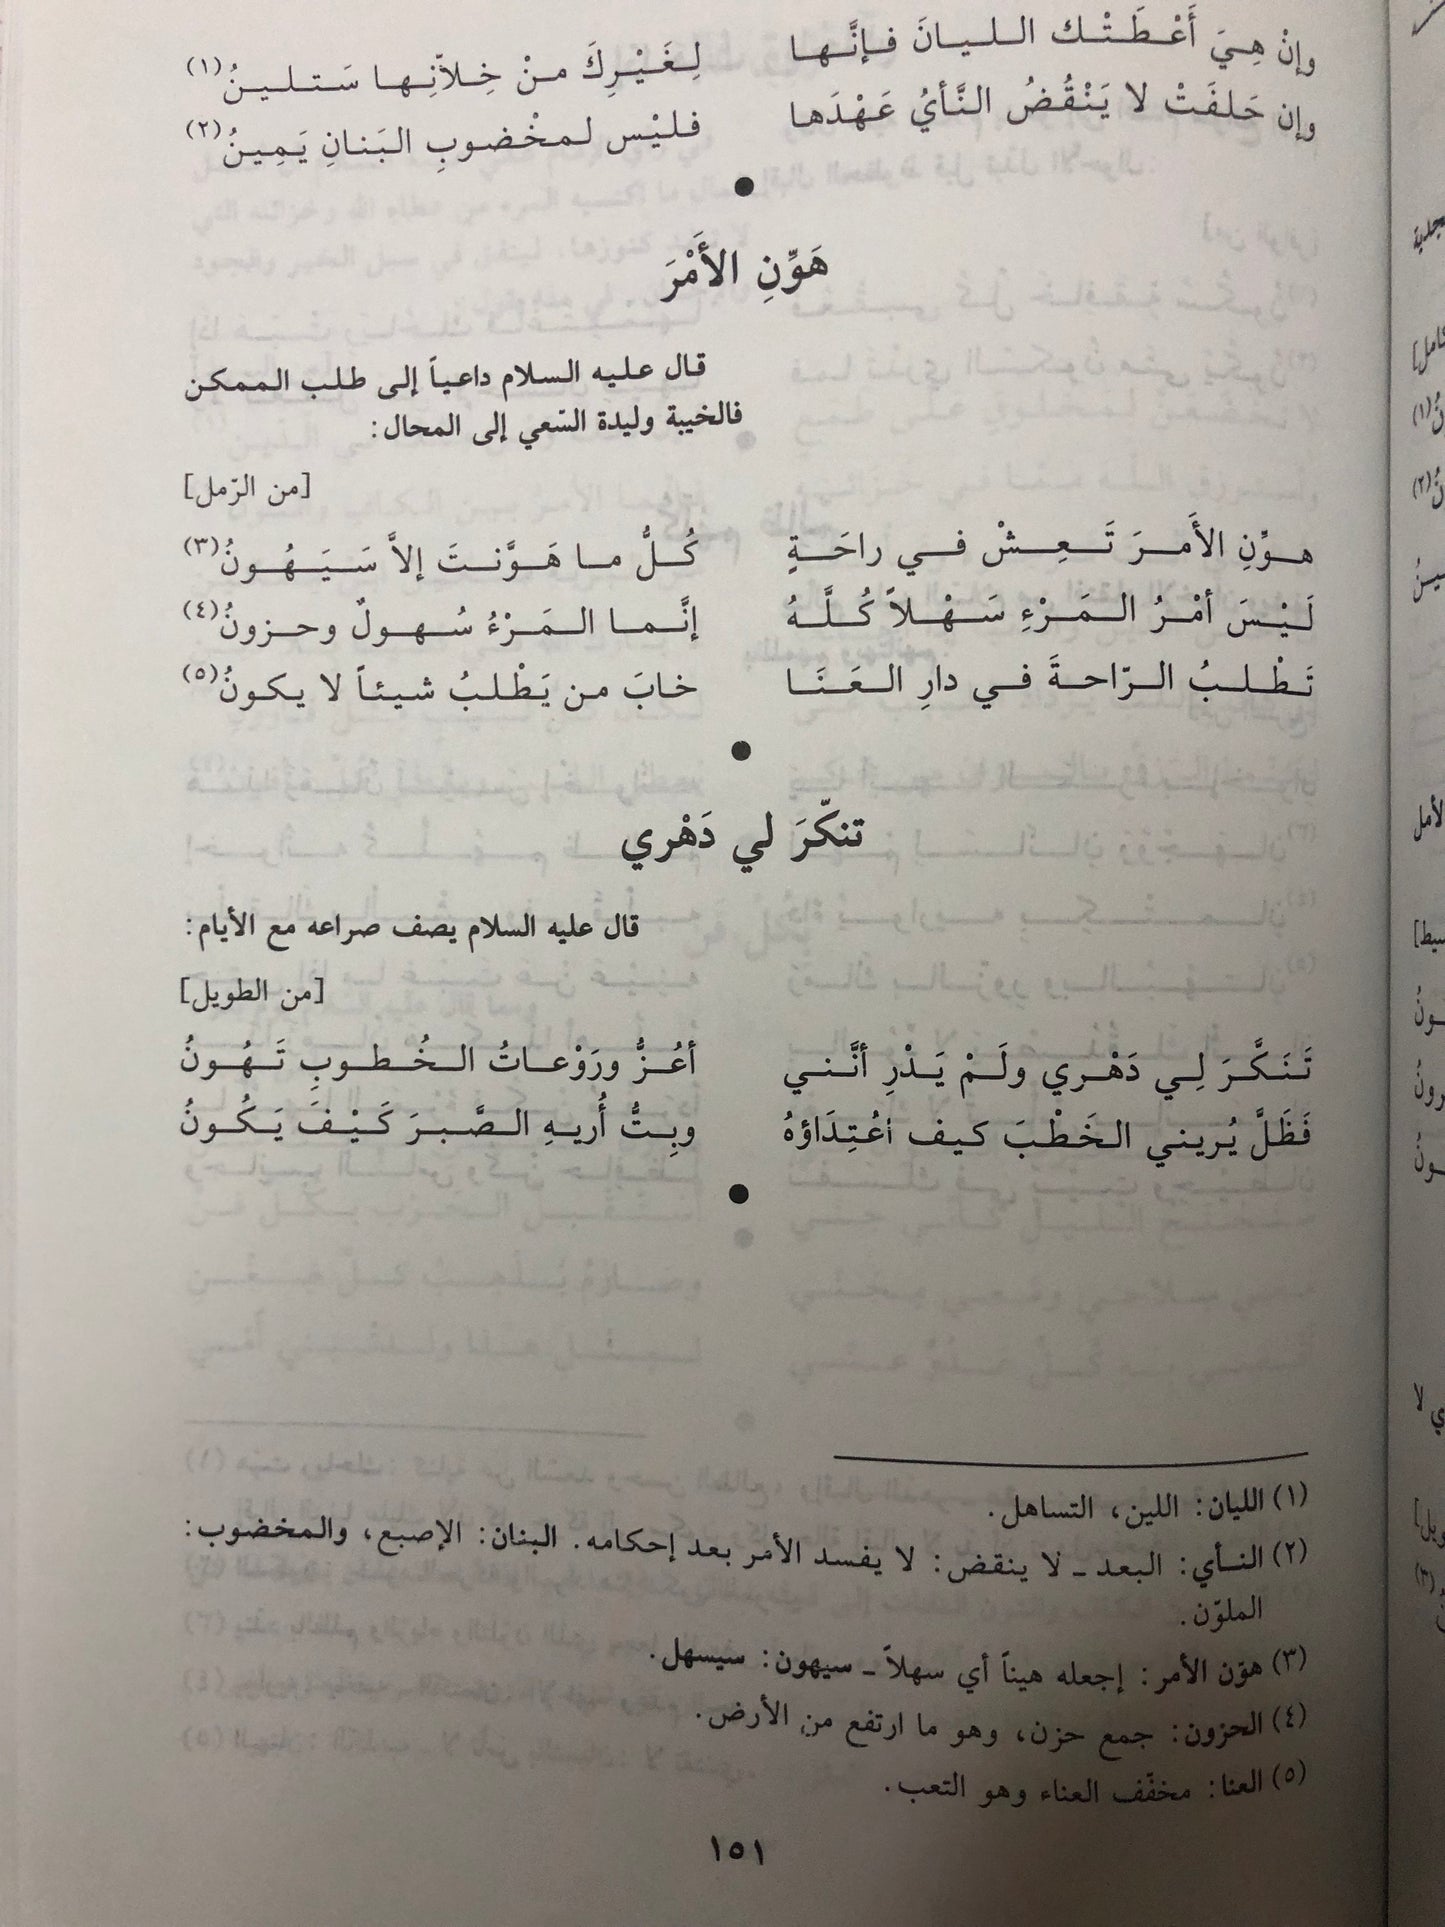 وإنْ هِيَ أَعْطَتْك الليانَ فإنَّها لِغَيْرِكَ منْ خِلاّنِها سَتلينُ(١)
وإن حَلفَتْ لا يَنْقُضُ النَّأيُ عَهْدَها فليْس لمخْضوبِ البَنانِ يَمِينُ(٢)
هَوِّنِ الأَمْرَ
قال عليه السلام داعياً إلى طلب الممكن
فالخيبة وليدة السّعي إلى المحال:
[من الرّمل]
هوِّنِ الأَمرَ تَعِشْ في راحَةٍ كُلُّ ما هَوَّنتَ إلاَّ سَيَهُونُ(٣)
لَيْسَ أمْرُ المَرْءِ سَهْلاً كُلَّهُ إنَّما المَرْءُ سُهولٌ وحزونُ(٤)
تَطْلبُ الرّاحةَ في دارِ العَنَا خابَ من يَطْلبُ شيئاً لا يكونُ(٥)
تنكّرَ لي دَهْري
قال عليه السلام يصف صراعه مع الأيام:
[من الطويل]
تَنَكَّرَ لِي دَهْري ولَمْ يَدْرِ أنَّني أعُزُّ ورَوْعاتُ الخُطوبِ تَهُونُ
فَظَلَّ يُريني الخَطْبَ كيف اعُتِدَاؤهُ وبِتُّ أُريهِ الصَّبرَ كَيْفَ يَكُونُ
(١) الليان: اللين، التساهل.
(٢) النأي: البعد ـ لا ينقض: لا يفسد الأمر بعد إحكامه. البنان: الإصبع، والمخضوب:
الملوّن.
(٣) هوّن الأمر: إجعله هيناً أي سهلاً ـ سيهون: سيسهل.
(٤) الحزون: جمع حزن، وهو ما ارتفع من الأرض.
(٥) العنا: مخفّف العناء وهو التعب.
١٥١